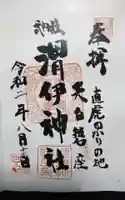 奉拝
直虎ゆかりの地
天白磐座
渭伊神社
令和二年八月十日